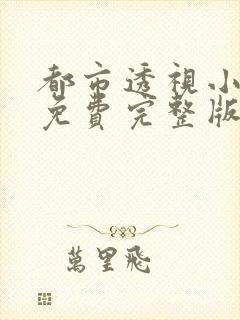 都市透視小
免費完整版
萬里飛